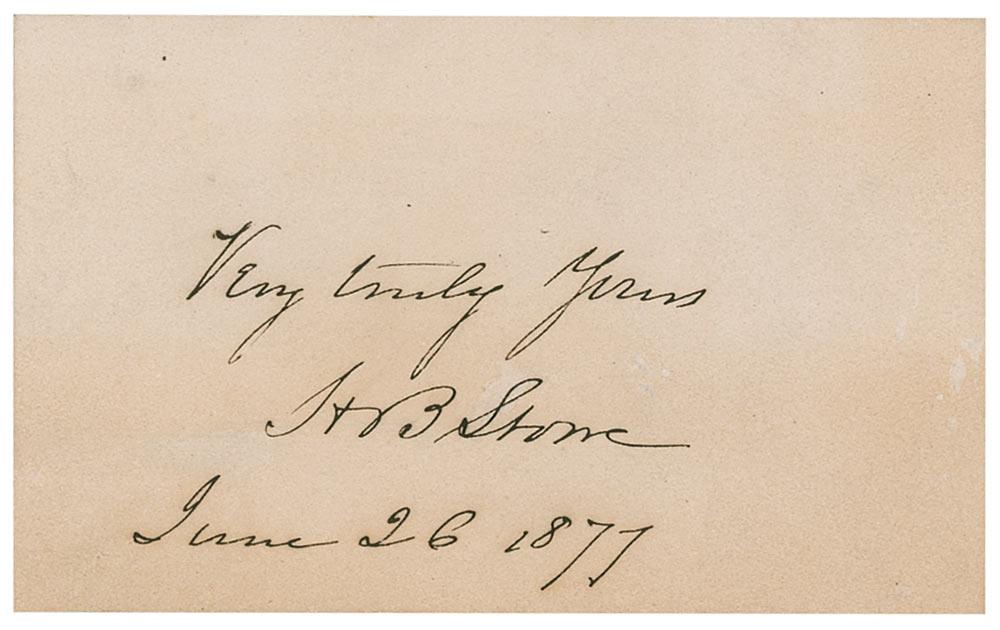 Very truly Yours
H B Stowe
June 26 1877